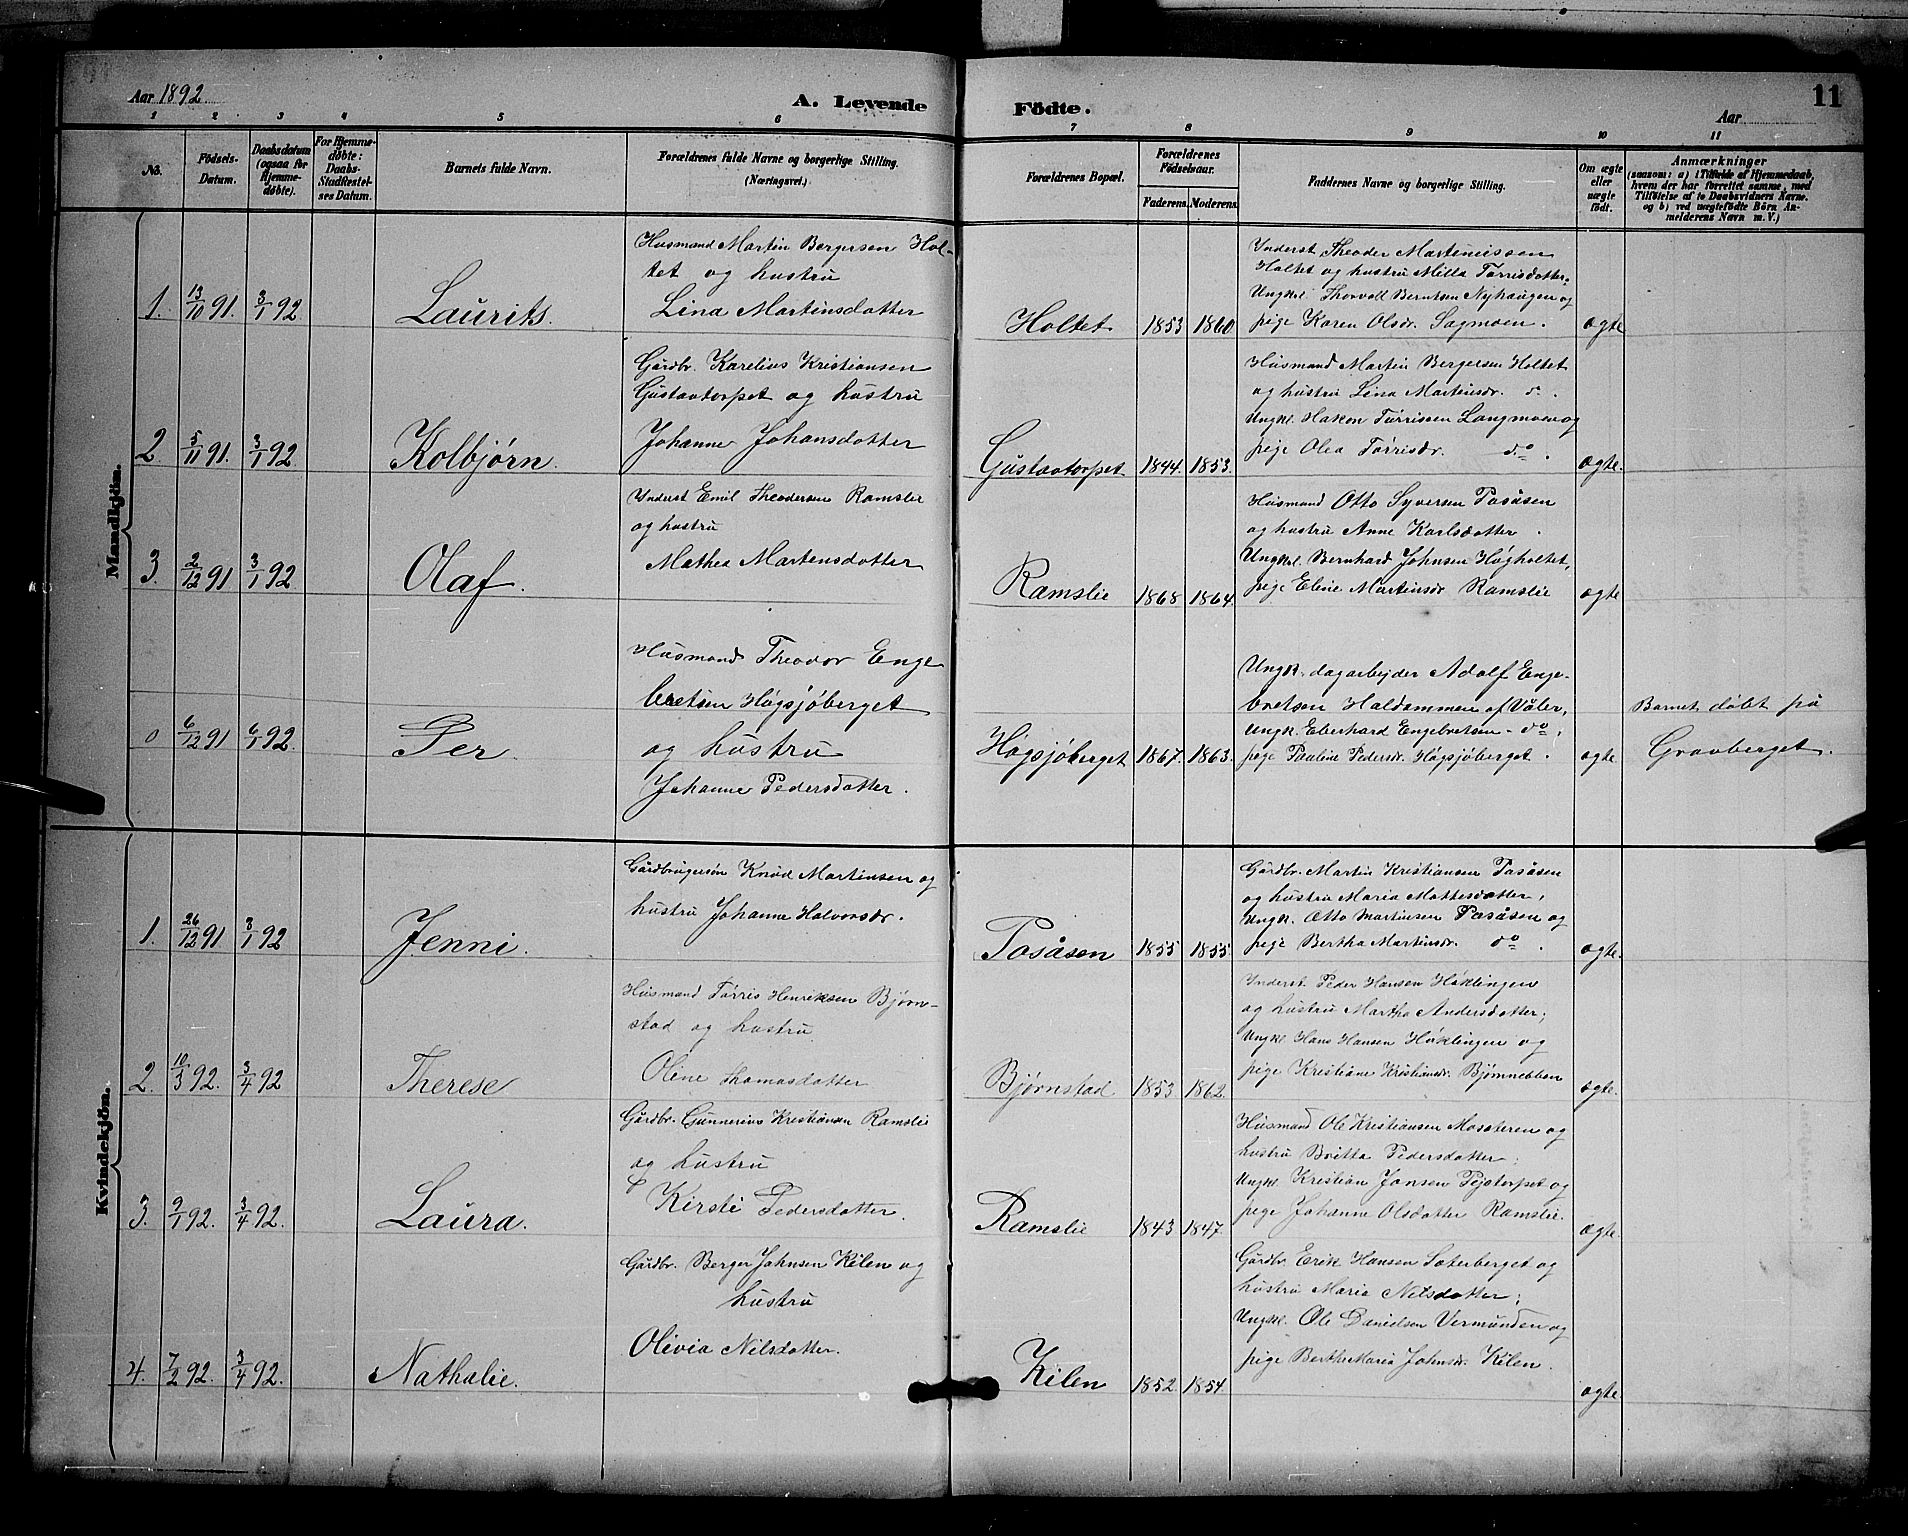 Aar 1892
A. Levende Födte.
Aar
11
1 2 3 4 5 6 7 8 9 10 11
No.
Födsels-
Datum.
Daabsdatum
(ogsaa for
Hjemme-
döbte).
For Hjemme-
döbte:
Daabs-
Stadfæstel-
ses Datum.
Barnets fulde Navn.
Forældrenes fulde Navne og borgerlige Stilling.
(Næringsvei.)
Forældrenes Bopæl.
Forældrenes
Födselsaar.
Faderens. Moderens.
Faddernes Navne og borgerlige Stilling.
Om ægte
eller
uægte
födt.
Anmærkninger
(saasom: a) i Tilfælde af Hjemmedaab,
hvem der har forrettet samme, med
Tilföielse af to Daabsvidners Navne.
og b) ved uægtefödte Börn An-
melderens Navn m. V.)
Mandkjön.
1. 13/10 91. 3/1 92 Laurits.
Husmand Martin Bergersen Hol-
tet og hustru
Lina Martinsdatter
Holtet 1853 1860
Inderst Theodor Martinussen
Holtet og hustru Milla Tørrisdatter,
Ungkl. Thorvall Berntsen Nyhaugen og
pige Karen Olsdr. Sagmoen.
ægte
2 5/11 91. 3/1 92 Kolbjørn.
Gårdbr. Karelius Kristiansen
Gustavtorpet og hustru
Johanne Johansdatter
Gustavtorpet 1844. 1853.
Husmand Martin Bergersen Holtet
og hustru Lina Martinsdr. do.
Ungkl. Hakon Tørrissen Langmoen og
pige Olea Tørrisdr. do.
ægte.
3. 2/12 91 3/1 92 Olaf.
Inderst Emil Theodersen Ramslie
og hustru
Mathea Martensdatter
Ramslie 1868 1864.
Husmand Otto Syversen Posåsen
og hustru Anne Karlsdatter.
Ungkl. Bernhard Johnsen Høgholtet,
pige Eline Martinsdr Ramslie
ægte
0 6/12 91 6/1 92. Per.
Husmand Theodor Enge
bretsen Høgsjøberget
og hustru
Johanne Pedersdatter.
Høgsjøberget 1867. 1863.
Ungk. dagarbejder Adolf Enge-
bretsen Haldammen af Våler,
Ungk. Eberhard Engebretsen do,
pige Pauline Pedersdr. Høgsjøberget.
ægte
Barnet døbt på
Gravberget.
Kvindekjön.
1. 26/12 91 3/1 92 Jenni.
Gårdbrugersøn Knud Martinsen og
hustru Johanne Halvorsdr.
Posåsen 1855 1855.
Gårdbr. Martin Kristiansen Posåsen
og hustru Maria Mattesdatter,
Ungk. Otto Martinsen Posåsen og
pige Bertha Martinsdr. do.
ægte.
2. 10/3 92. 3/4 92 Therese
Husmand Tørris Henriksen Bjørn-
stad og hustru
Oline Thomasdatter
Bjørnstad 1853 1862.
Inderst. Peder Hansen Høklingen
og hustru Martha Andersdatter;
Ungkl Hans Hansen Høklingen og
pige Kristiane Kristiansdr. Bjørnnebben
ægte.
3. 9/1 92. 3/4 92. Laura.
Gårdbr. Gunnerius Kristiansen Ramslie
og hustru
Kirsti Pedersdatter.
Ramslie 1843 1847
Husmand Ole Kristiansen Mosæteren og
hustru Britta Pedersdatter;
Ungkl. Kristian Jonsen Pejstorpet og
pige Johanne Olsdatter Ramslie.
ægte.
4. 7/2 92. 3/4 92. Nathalie.
Gårdbr. Berger Johnsen Kilen og
hustru
Olivia Nilsdatter.
Kilen 1852. 1854.
Gårdbr. Erik Hansen Sæterberget og
hustru Maria Nilsdatter;
Ungkl. Ole Danielsen Vermunden og
pige Berthe Maria Johnsdr. Kilen.
ægte.